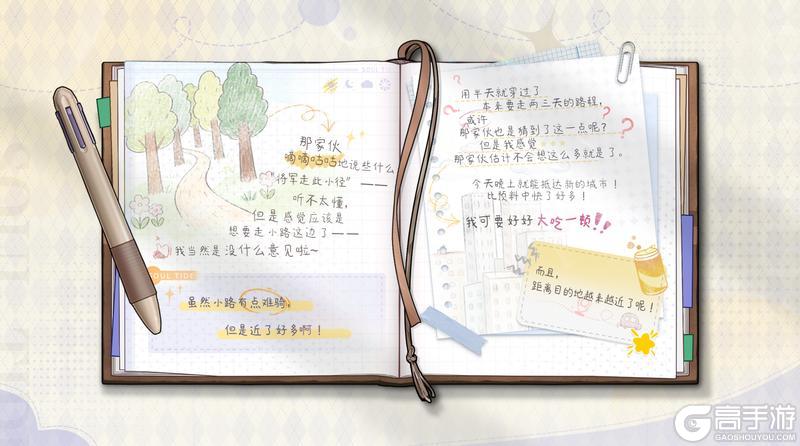 SOUL TI
那家伙
嘀嘀咕咕地说些什么
“将军走此小径”——
听不太懂，
但是感觉应该是
想要走小路这边了——
我当然是没什么意见啦~
SOUL TIDE
虽然小路有点难骑，
但是近了好多啊！
用半天就穿过了
本来要走两三天的路程，
或许
那家伙也是猜到了这一点呢？
但是我感觉
那家伙估计不会想这么多就是了。
今天晚上就能抵达新的城市！
比预料中快了好多！
我可要好好大吃一顿！！
而且，
距离目的地越来越近了呢！
高手游
GAOSHOUYOU.COM